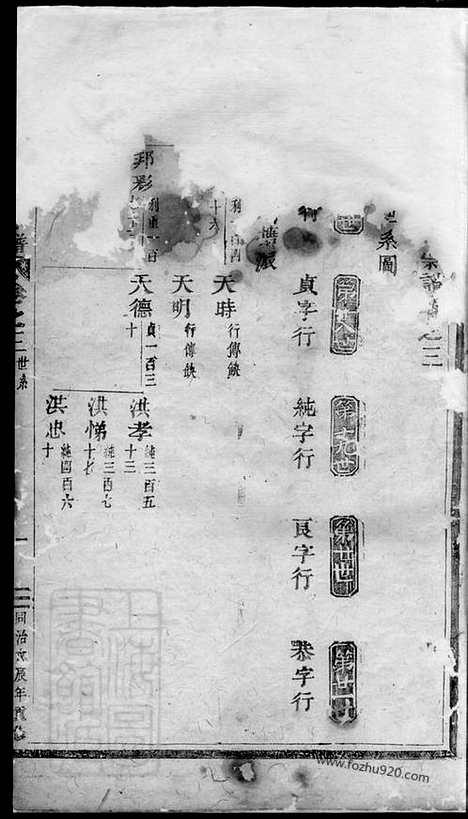 宗譜卷之三
世系圖
第十八世
貞字行
第十九世
純字行
第廿世
良字行
第廿一世
恭字行
利一百四十六
天時 行傳缺
天明 行傳缺
邦彩
天德 貞一百三十
洪孝 純三百五十三
洪悌 純三百七十七
洪忠 純四百六十
卷之三 世系
一
同治戊辰年重修
www.fozhu920.com